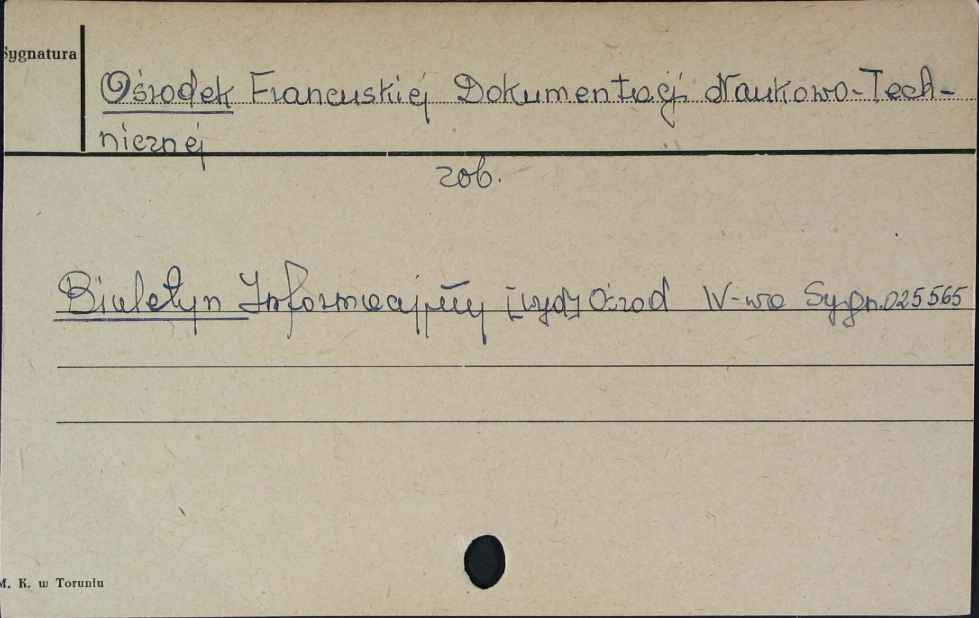 Sygnatura
Ośrodek Francuskiej Dokumentacji Naukowo-Tech-
nicznej
zob.
Biuletyn Informacyjny [wyd] Ośrod W-wa Sygn. 025565
M. K. w Toruniu